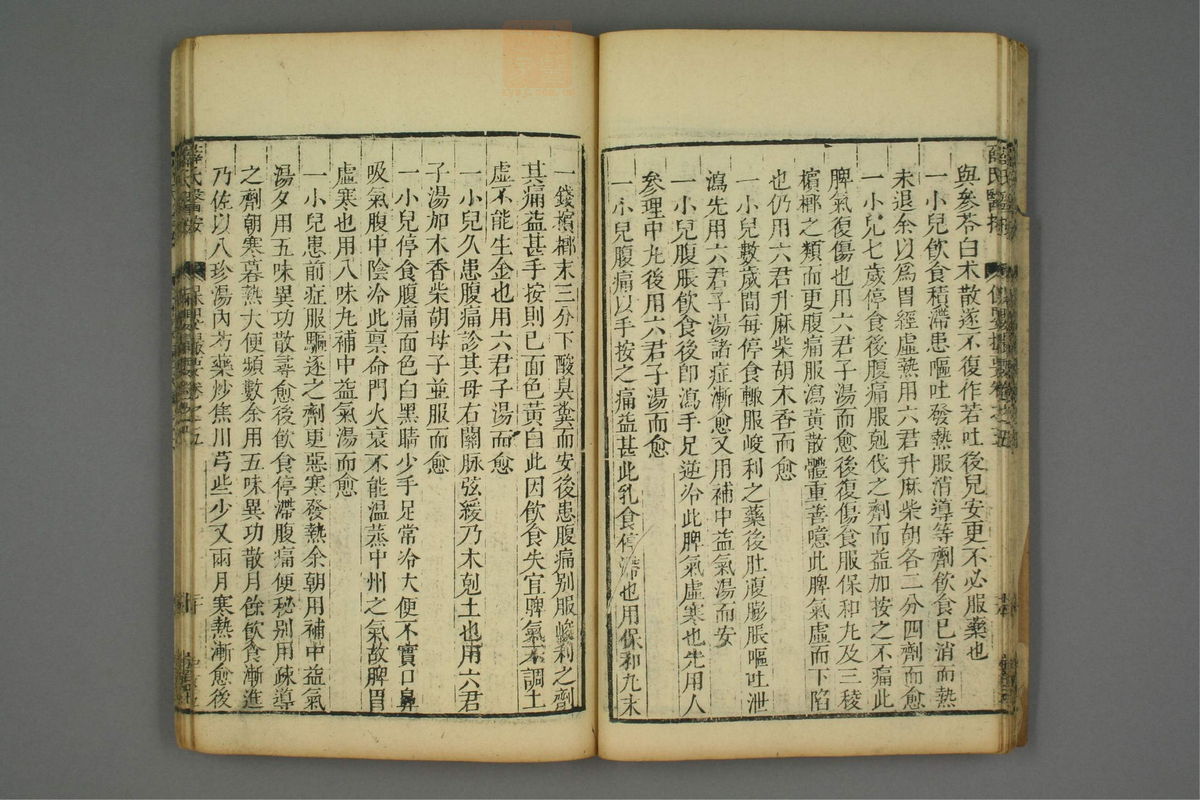 薛氏醫按
保嬰撮要卷之五
與參苓白朮散遂不復作若吐後兒安更不必服藥也
一小兒飲食積滯患嘔吐發熱服消導等劑飲食已消而熱
未退余以爲胃經虛熱用六君升麻柴胡各二分四劑而愈
一小兒七歲停食後腹痛服剋伐之劑而益加按之不痛此
脾氣復傷也用六君子湯而愈後復傷食服保和丸及三稜
檳榔之類而更腹痛服瀉黃散體重善噫此脾氣虛而下陷
也仍用六君升麻柴胡木香而愈
一小兒數歲間每停食輙服峻利之藥後肚腹膨脹嘔吐泄
瀉先用六君子湯諸症漸愈又用補中益氣湯而安
一小兒腹脹飲食後卽瀉手足逆冷此脾氣虛寒也先用人
參理中丸後用六君子湯而愈
一小兒腹痛以手按之痛益甚此乳食停滯也用保和丸末
一錢檳榔末三分下酸臭糞而安後患腹痛别服峻利之劑
其痛益甚手按則已面色黃白此因飲食失宜脾氣不調土
虛不能生金也用六君子湯而愈
一小兒久患腹痛診其母右關脉弦緩乃木剋土也用六君
子湯加木香柴胡母子並服而愈
一小兒停食腹痛面色白黑睛少手足常冷大便不實口鼻
吸氣腹中陰冷此禀命門火衰不能温蒸中州之氣故脾胃
虛寒也用八味丸補中益氣湯而愈
一小兒患前症服驅逐之劑更惡寒發熱余朝用補中益氣
湯夕用五味異功散尋愈後飲食停滯腹痛便秘别用疎導
之劑朝寒暮熱大便頻數余用五味異功散月餘飲食漸進
乃佐以八珍湯內芍藥炒焦川芎些少又兩月寒熱漸愈後
薛氏醫按
保嬰撮要卷之五